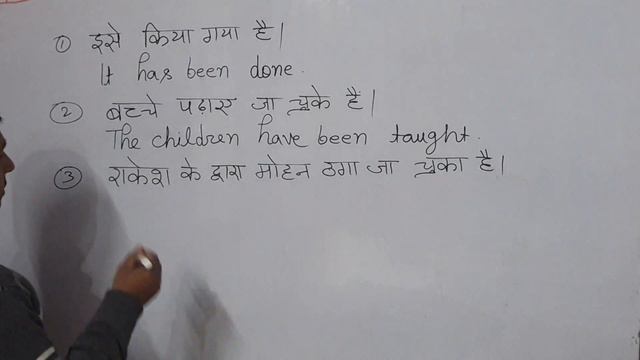 ① इसे किया गया है।
It has been done.
② बच्चे पढ़ाए जा चुके हैं।
The children have been taught.
③ राकेश के द्वारा मोहन ठगा जा चुका है।